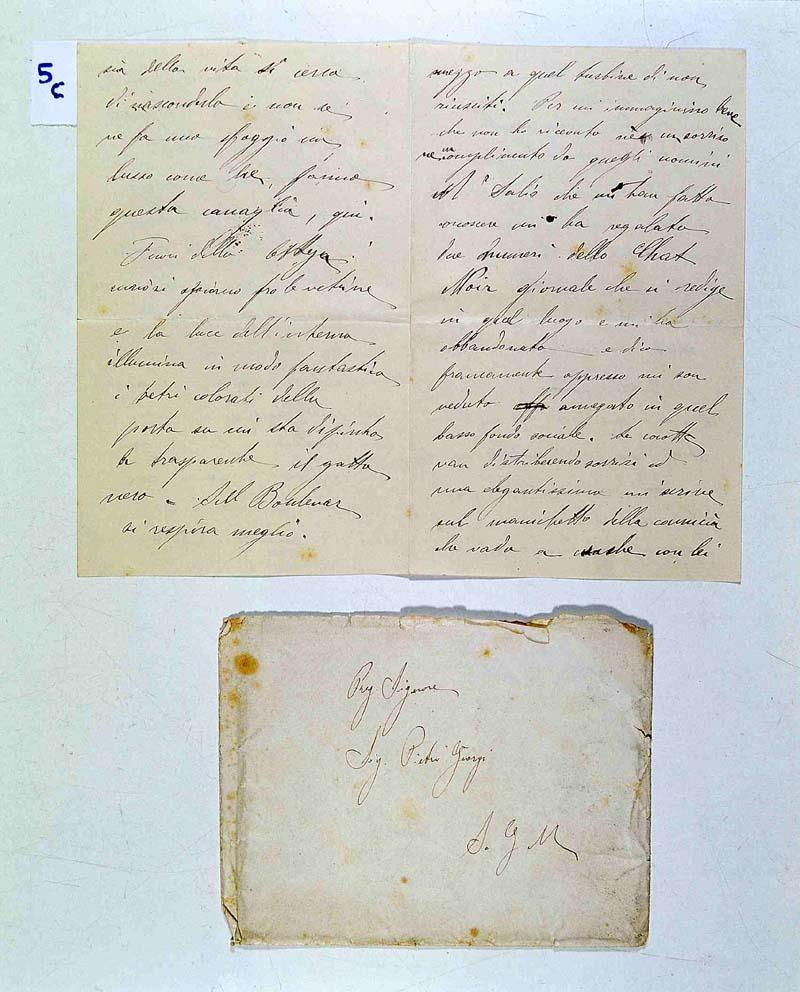 5c
sia della vita si cerca
di nasconderla e non se
ne fa uno sfoggio un
lusso come fanno
questa canaglia, qui.
Fuori della bottega i
curiosi spiano fra le vetrine
e la luce dell'interno
illumina in modo fantastico
i vetri colorati della
porta su cui sta dipinto
in trasparente il gatto
nero = Sul Boulevar
si respira meglio.
mezzo a quel turbine di non
riusciti. Per cui immaginino bene
che non ho ricevuto nè un sorriso
ne un complimento da quegli uomini
Il Salis che mi han fatto
conoscere mi ha regalato
due numeri dello Chat
Noir giornale che si redige
in quel luogo e mi ha
abbandonato e dico
francamente appresso mi son
veduto annegato in quel
basso fondo sociale. Le cocotte
van distribuendo sorrisi ed
una elegantissima mi scrive
sul manichetto della camicia
che vada a con lei
Preg. Signore
Sig. Pietro Giorgi
S. G. M.